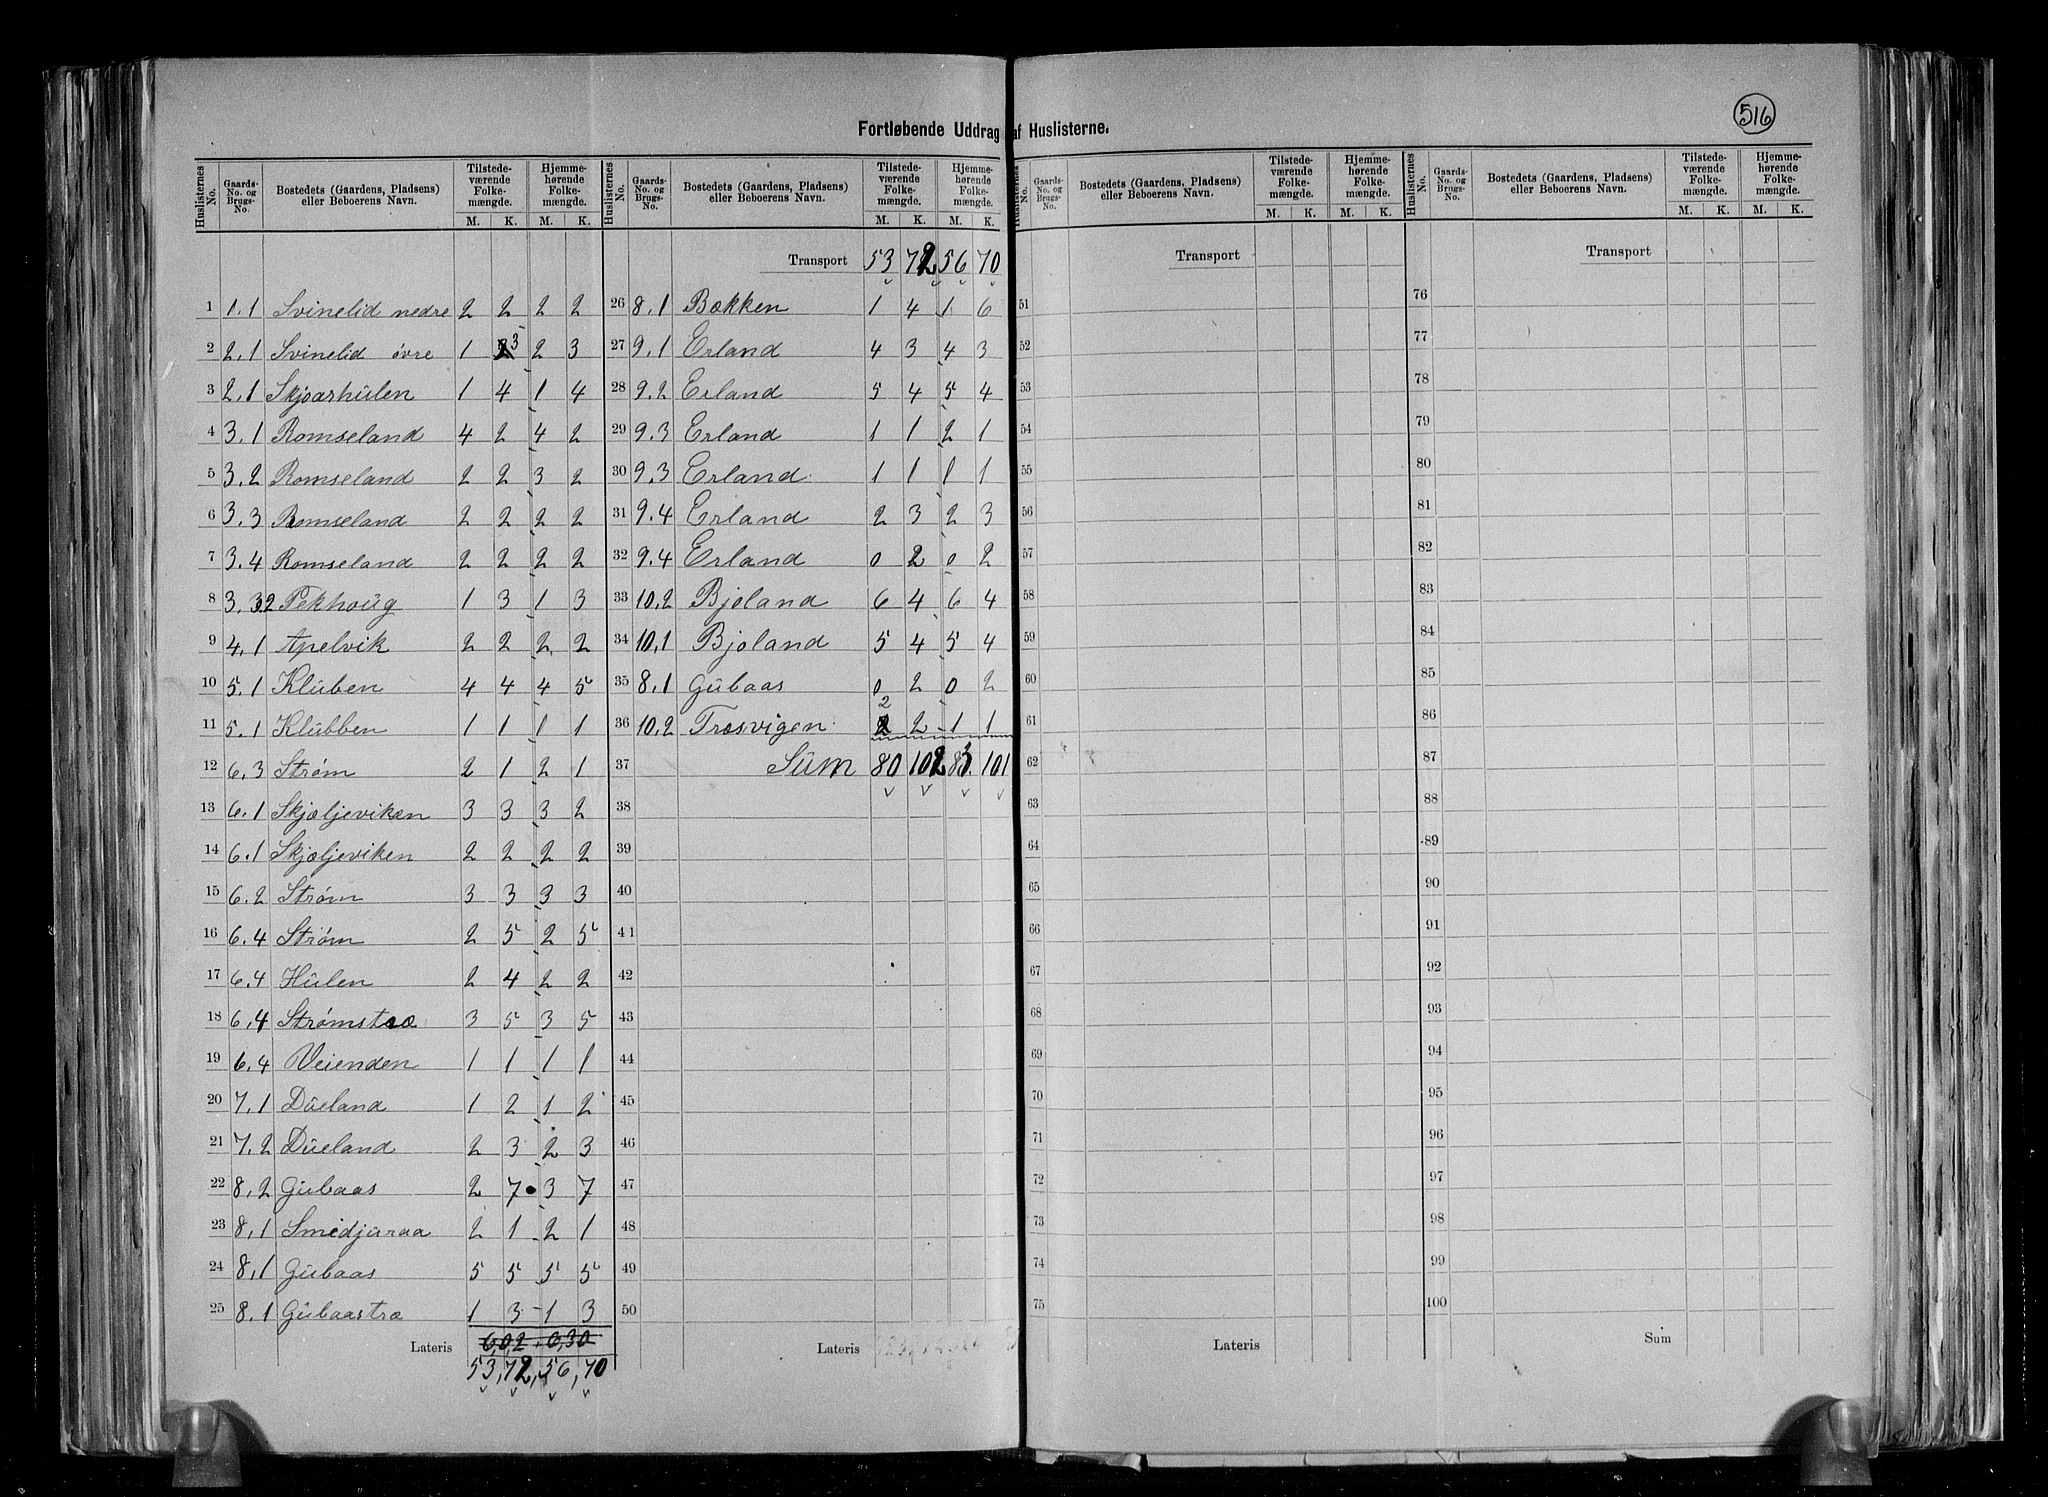 516
Fortløbende Uddrag af Huslisterne.
Huslisternes No. Gaards-No. og Brugs-No. Bostedets (Gaardens, Pladsens) eller Beboerens Navn. Tilstedeværende Folkemængde. M. K. Hjemmehørende Folkemængde. M. K.
1 1.1 Svinelid nedre 2 2 2 2
2 2.1 Svinelid övre 1 3 2 3
3 2.1 Skjoarhulen 1 4 1 4
4 3.1 Romseland 4 2 4 2
5 3.2 Romseland 2 2 3 2
6 3.3 Romseland 2 2 2 2
7 3.4 Romseland 2 2 2 2
8 3.32 Pekhoug 1 3 1 3
9 4.1 Apelvik 2 2 2 2
10 5.1 Kluben 4 4 4 5
11 5.1 Klubben 1 1 1 1
12 6.3 Strøm 2 1 2 1
13 6.1 Skjæljeviken 3 3 3 2
14 6.1 Skjæljeviken 2 2 2 2
15 6.2 Strøm 3 3 3 3
16 6.4 Strøm 2 5 2 5
17 6.4 Hulen 2 4 2 2
18 6.4 Strømstræ 3 5 3 5
19 6.4 Veienden 1 1 1 1
20 7.1 Dueland 1 2 1 2
21 7.2 Dueland 2 3 2 3
22 8.2 Gubaas 2 7 3 7
23 8.1 Smedjuraa 2 1 2 1
24 8.1 Gubaas 5 5 5 5
25 8.1 Gubaastræ 1 3 1 3
6,02 6,30
Lateris 53,72,56,70
Huslisternes No. Gaards-No. og Brugs-No. Bostedets (Gaardens, Pladsens) eller Beboerens Navn. Tilstedeværende Folkemængde. M. K. Hjemmehørende Folkemængde. M. K.
Transport 53 72 56 70
26 8.1 Bækken 1 4 1 6
27 9.1 Erland 4 3 4 3
28 9.2 Erland 5 4 5 4
29 9.3 Erland 1 1 2 1
30 9.3 Erland 1 1 1 1
31 9.4 Erland 2 3 2 3
32 9.4 Erland 0 2 0 2
33 10.2 Bjoland 6 4 6 4
34 10.1 Bjoland 5 4 5 4
35 8.1 Gubaas 0 2 0 2
36 10.2 Træsvigen 2 2 1 1
37 Sum 80 102 83 101
38
39
40
41
42
43
44
45
46
47
48
49
50
Lateris
Huslisternes No. Gaards-No. og Brugs-No. Bostedets (Gaardens, Pladsens) eller Beboerens Navn. Tilstedeværende Folkemængde. M. K. Hjemmehørende Folkemængde. M. K.
Transport
51
52
53
54
55
56
57
58
59
60
61
62
63
64
65
66
67
68
69
70
71
72
73
74
75
Lateris
Huslisternes No. Gaards-No. og Brugs-No. Bostedets (Gaardens, Pladsens) eller Beboerens Navn. Tilstedeværende Folkemængde. M. K. Hjemmehørende Folkemængde. M. K.
Transport
76
77
78
79
80
81
82
83
84
85
86
87
88
89
90
91
92
93
94
95
96
97
98
99
100
Sum